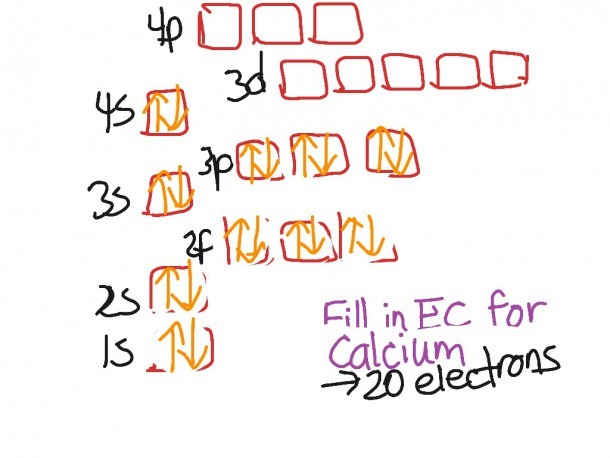 4p
3d
4s
3p
3s
2f
2s
1s
Fill in EC for
Calcium
→20 electrons